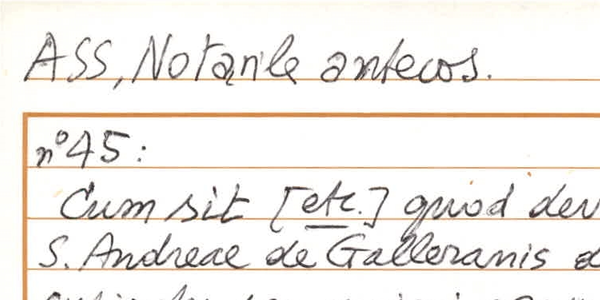 ASS, Notarile antecos.
n° 45:
Cum sit [etc.] quod dev
S. Andreae de Galleranis d